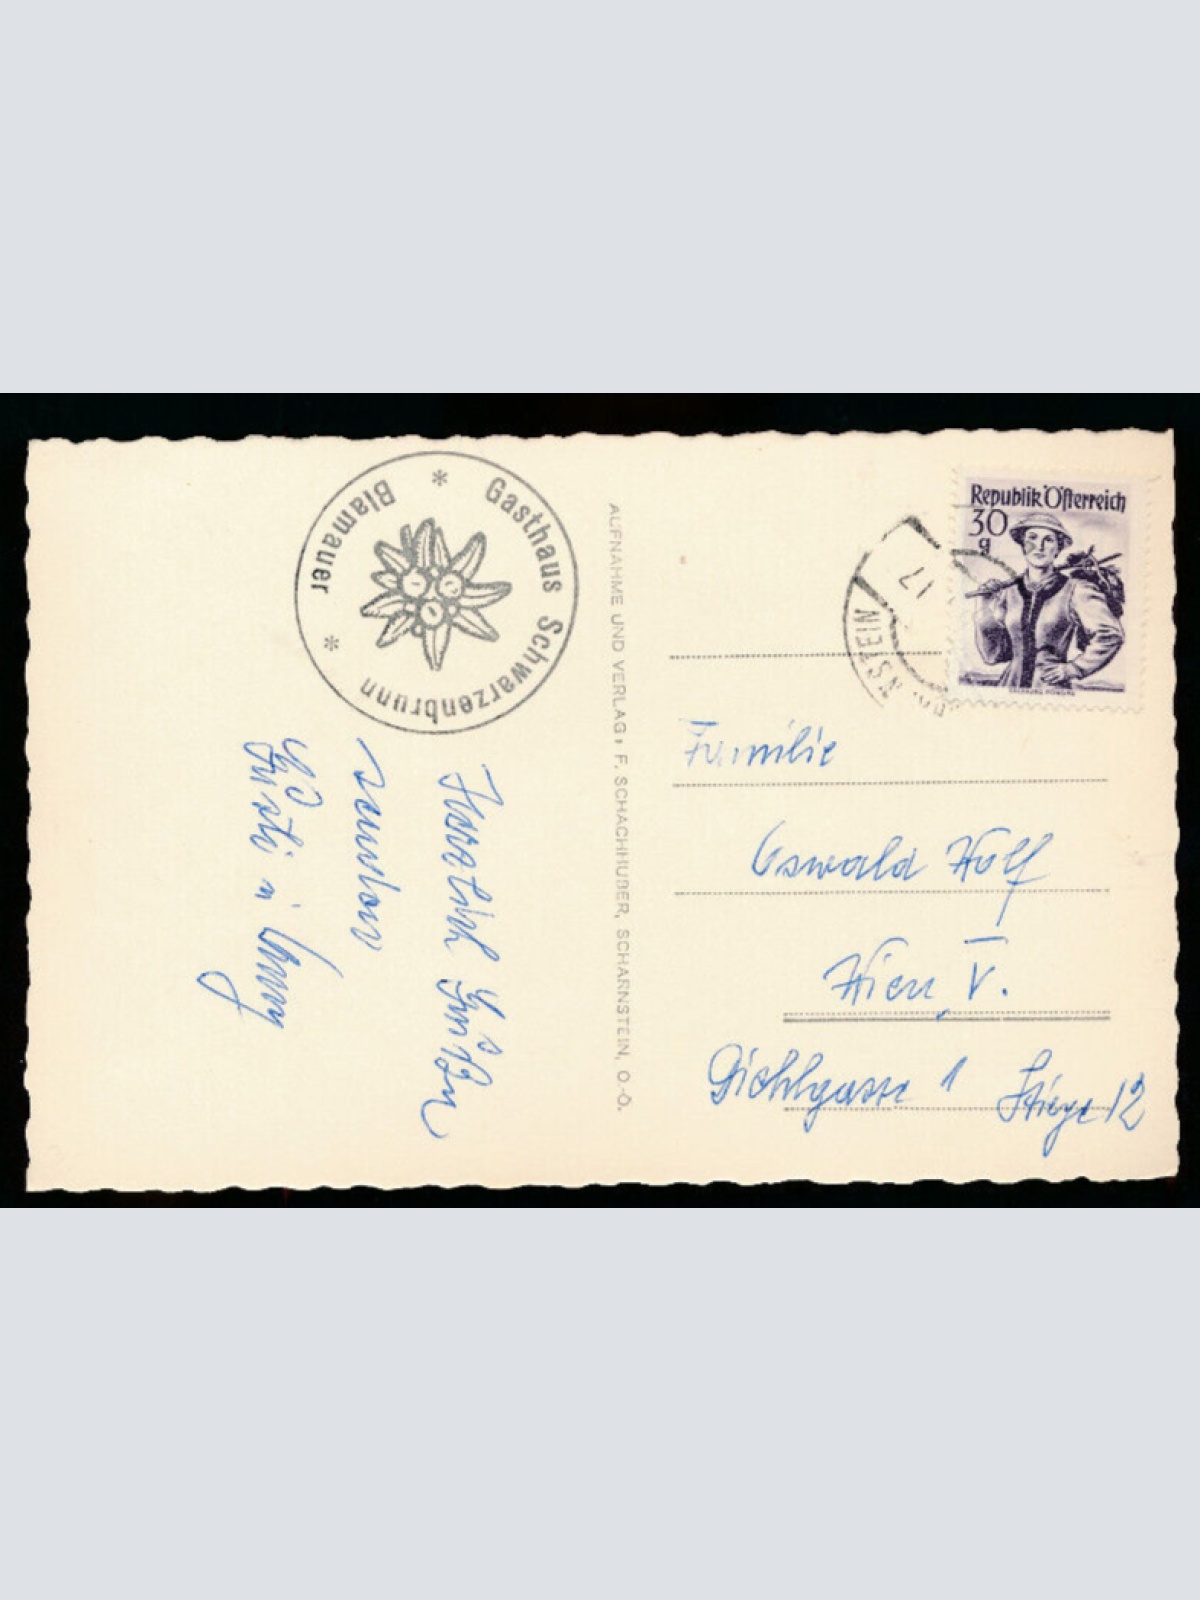 Gasthaus Schwarzenbrunn
* Blamauer *
Herzlich Grüßen
senden
Gusti u.
AUFNAHME UND VERLAG: F. SCHACHHUBER, SCHARNSTEIN, O.-Ö.
Republik Österreich
30
g
17
NSTEIN
Familie
Oswald Wolf
Wien V.
1 Stiege 12